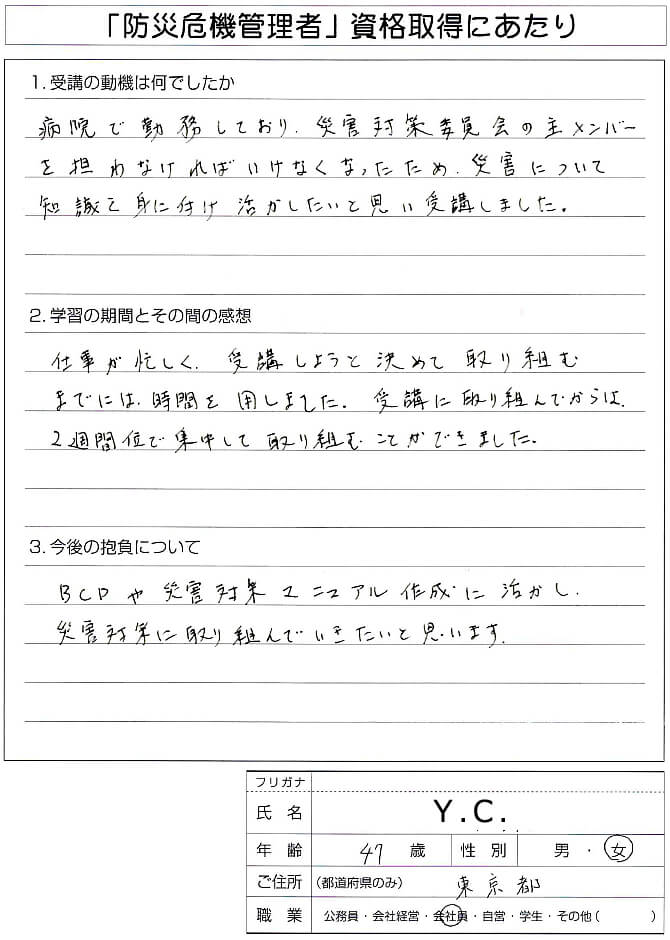 「防災危機管理者」資格取得にあたり
1.受講の動機は何でしたか
病院で勤務しており、災害対策委員会の主メンバー
を担わなければいけなくなったため、災害について
知識を身に付け活かしたいと思い受講しました。
2.学習の期間とその間の感想
仕事が忙しく、受講しようと決めて取り組む
までには、時間を用しました。受講に取り組んでからは、
2週間位で集中して取り組むことができました。
3.今後の抱負について
BCPや災害対策マニュアル作成に活かし、
災害対策に取り組んでいきたいと思います。
フリガナ
氏名 Y.C.
年齢 47歳 性別 男・女
ご住所 (都道府県のみ) 東京都
職業 公務員・会社経営・会社員・自営・学生・その他( )